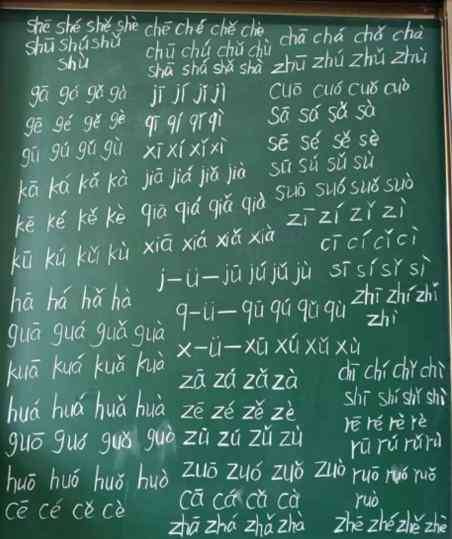 shē shé shě shè
shū shú shǔ
shù
gā gá gǎ gà
gē gé gě gè
gū gú gǔ gù
kā ká kǎ kà
kē ké kě kè
kū kú kǔ kù
hā há hǎ hà
guā guá guǎ guà
kuā kuá kuǎ kuà
huá huá huǎ huà
guō guó guǒ guò
huō huó huǒ huò
cē cé cě cè
chē ché chě chè
chū chú chǔ chù
shā shá shǎ shà
jī jí jǐ jì
qī qí qǐ qì
xī xí xǐ xì
jiā jiá jiǎ jià
qiā qiá qiǎ qià
xiā xiá xiǎ xià
j-ü-jū jú jǔ jù
q-ü-qū qú qǔ qù
x-ü-xū xú xǔ xù
zā zá zǎ zà
zē zé zě zè
zū zú zǔ zù
zuō zuó zuǒ zuò
cā cá cǎ cà
zhā zhá zhǎ zhà
chā chá chǎ chà
zhū zhú zhǔ zhù
cuō cuó cuǒ cuò
sā sá sǎ sà
sē sé sě sè
sū sú sǔ sù
suō suó suǒ suò
zī zí zǐ zì
cī cí cǐ cì
sī sí sǐ sì
zhī zhí zhǐ
zhì
chī chí chǐ chì
shī shí shǐ shì
rē ré rě rè
rū rú rǔ rù
ruō ruó ruǒ
ruò
zhē zhé zhě zhè